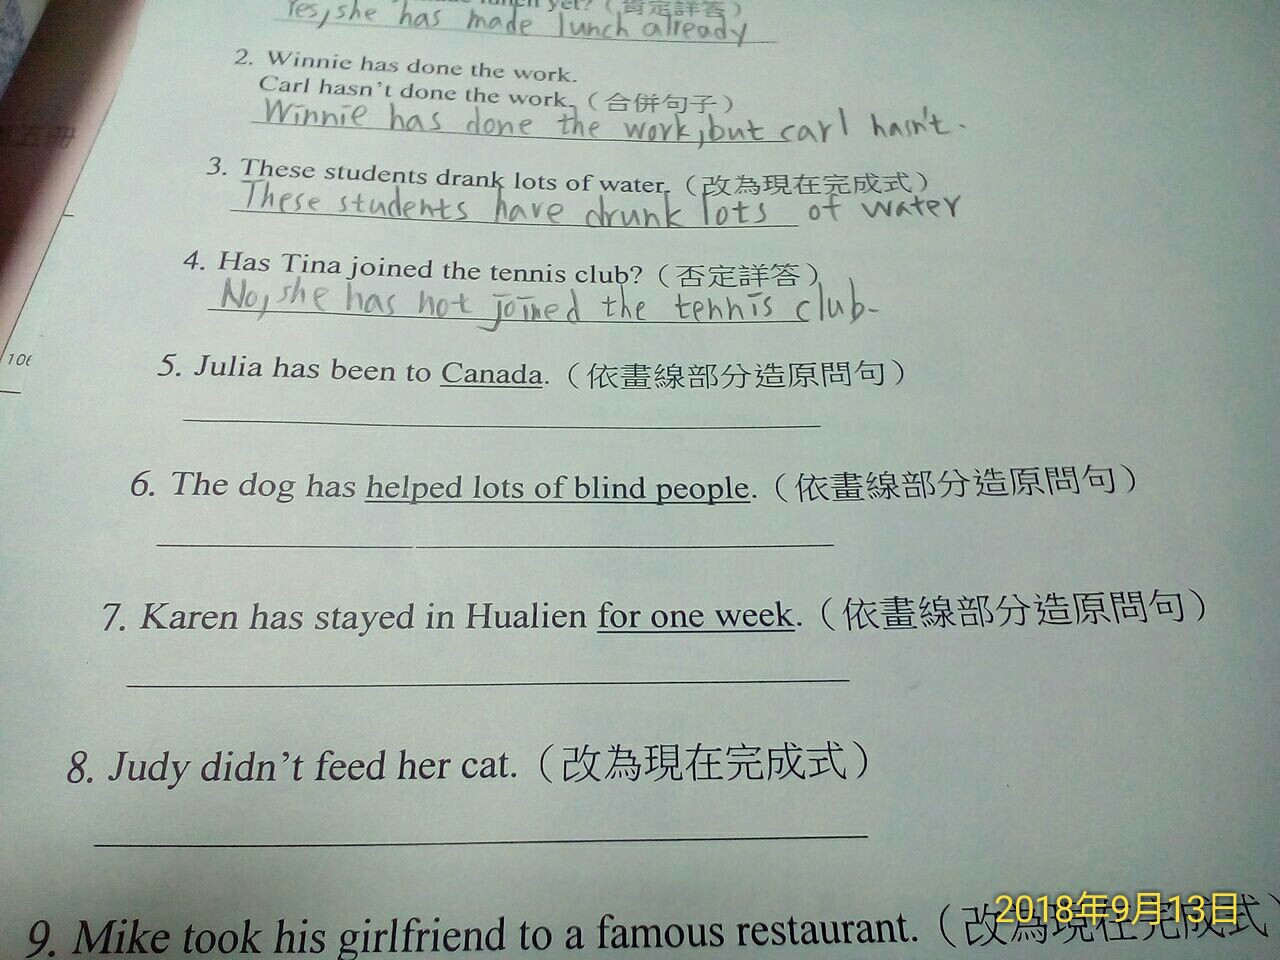 yet?（肯定詳答）
Yes, she has made lunch already
2. Winnie has done the work.
Carl hasn't done the work.（合併句子）
Winnie has done the work, but carl hasn't.
五冊
3. These students drank lots of water.（改為現在完成式）
These students have drunk lots of water
4. Has Tina joined the tennis club?（否定詳答）
No, she has not joined the tennis club.
106
5. Julia has been to Canada.（依畫線部分造原問句）
6. The dog has helped lots of blind people.（依畫線部分造原問句）
7. Karen has stayed in Hualien for one week.（依畫線部分造原問句）
8. Judy didn't feed her cat.（改為現在完成式）
9. Mike took his girlfriend to a famous restaurant.（改為現在完成式）
2018年9月13日